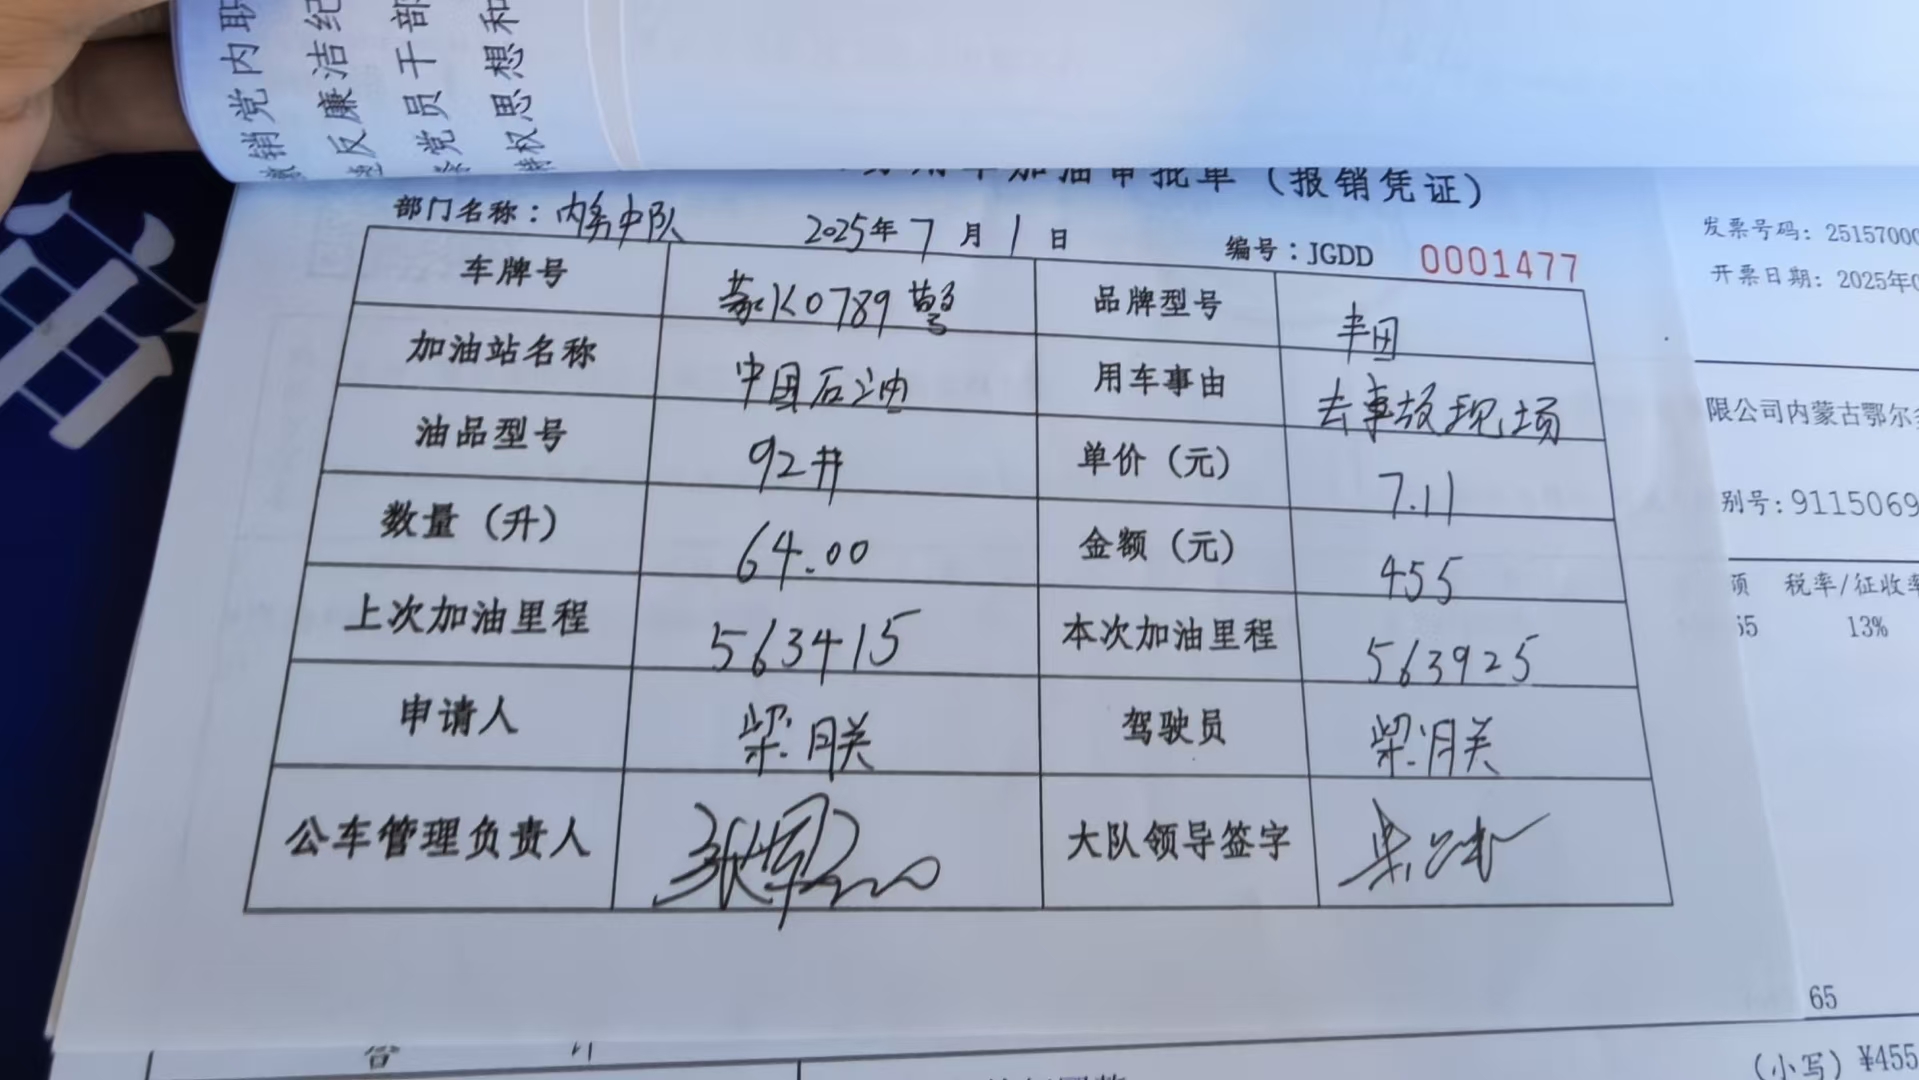 销党内职
反廉洁纪
党员干部
权思想和
加油审批单（报销凭证）
部门名称：内务中队 2025年7月1日 编号：JGDD 0001477
车牌号 蒙K0789警 品牌型号 丰田
加油站名称 中国石油 用车事由 去事故现场
油品型号 92# 单价（元） 7.11
数量（升） 64.00 金额（元） 455
上次加油里程 563415 本次加油里程 563925
申请人 柴朕 驾驶员 柴朕
公车管理负责人
大队领导签字
发票号码：25157000
开票日期：2025年0
限公司内蒙古鄂尔
别号：9115069
税率/征收率
13%
65
合 计
(小写) ¥455